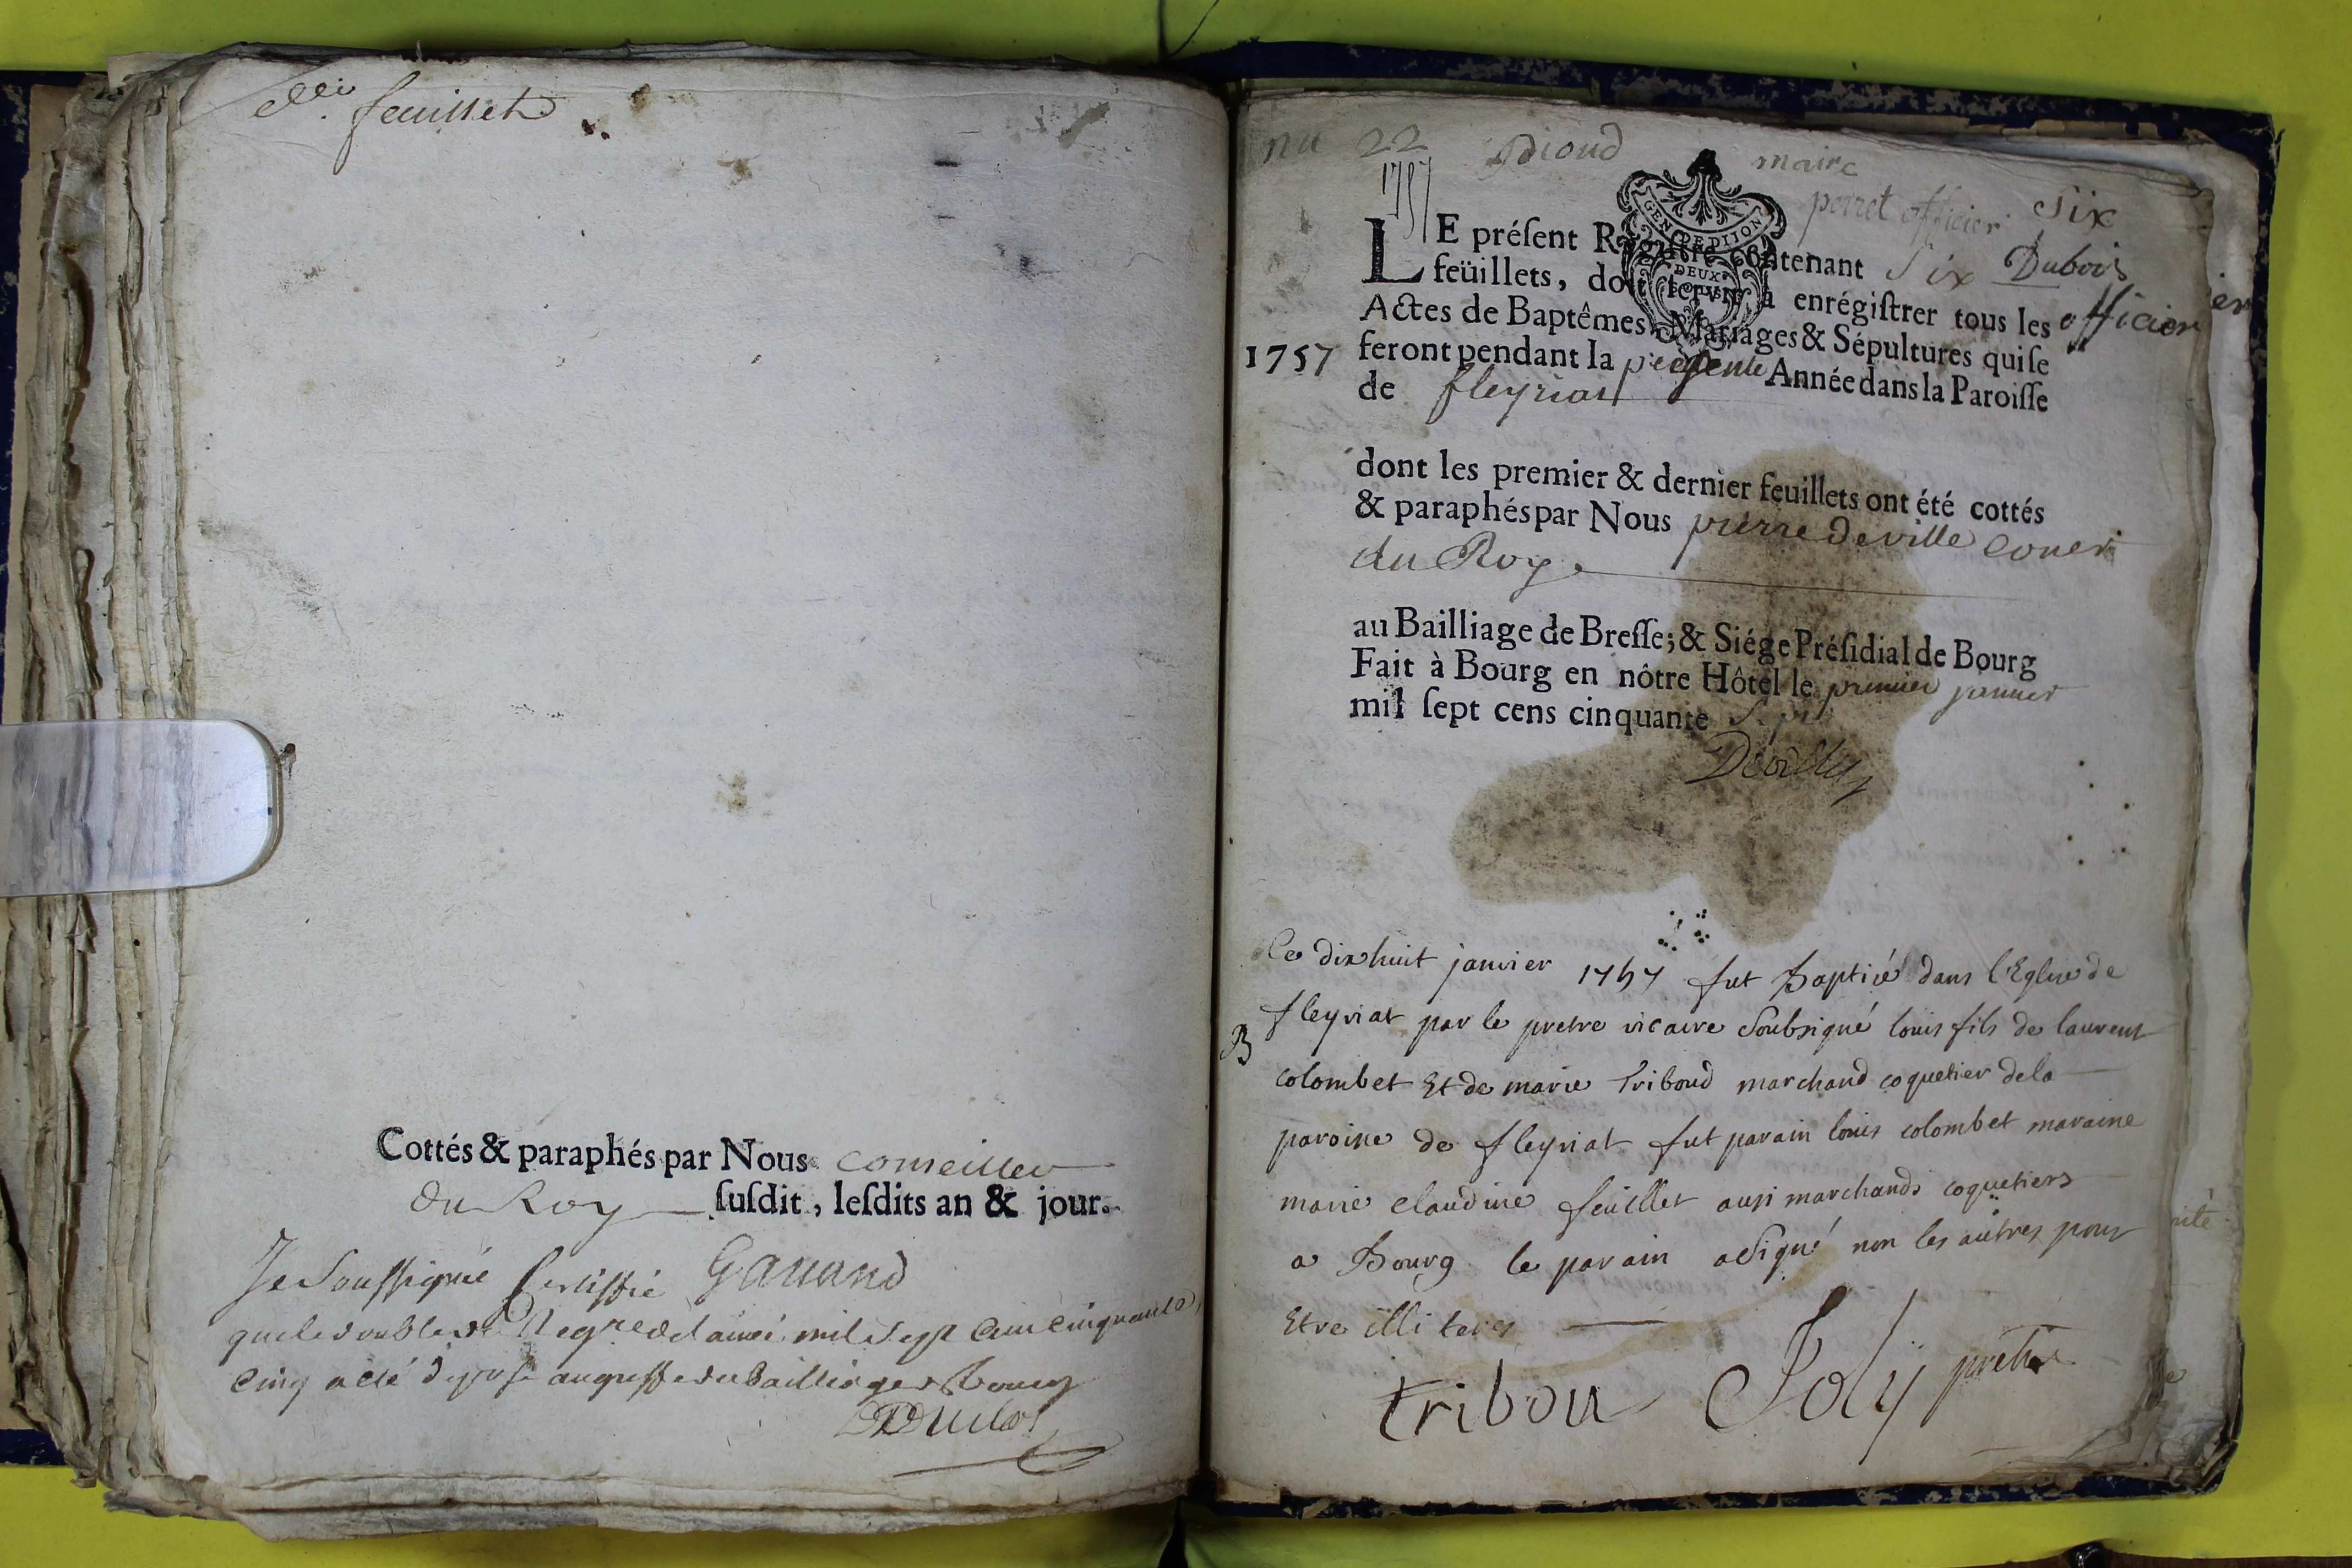 feuillet
Cottés & paraphés par Nous conseiller
du Roy ſuſdit, leſdits an & jour.
Je Soussigné Certiffie Gauand
que le double du Regre de l'année mil Sept Cent Cinquante
Cinq a été déposé au greffe du Bailliage de Bourg
nu 22 Dioud maire
1757 perret officier Six
GEN. DE DIJON
DEUX SOLS
LE préſent Regiſtre contenant Six Dubois
feüillets, doit ſervir à enrégiſtrer tous les officier
Actes de Baptêmes, Mariages & Sépultures qui ſe
1757 feront pendant la presente Année dans la Paroiſſe
de fleyriat
dont les premier & dernier feuillets ont été cottés
& paraphés par Nous pierre Deville coner
du Roy
au Bailliage de Breſſe; & Siége Préſidial de Bourg
Fait à Bourg en nôtre Hôtel le premier janvier
mil ſept cens cinquante Sept
Ce dixhuit janvier 1757 fut baptisé dans l'Eglise de
fleyriat par le pretre vicaire Soubsigné louis fils de laurent
B
colombet Et de marie triboud marchand coquetier dela
paroisse de fleyriat fut parain louis colombet maraine
marie claudine feuillet aussi marchands coquetiers
a Bourg le parain a Signé non les autres pour
Etre illiteres
tribou Joly prêtre